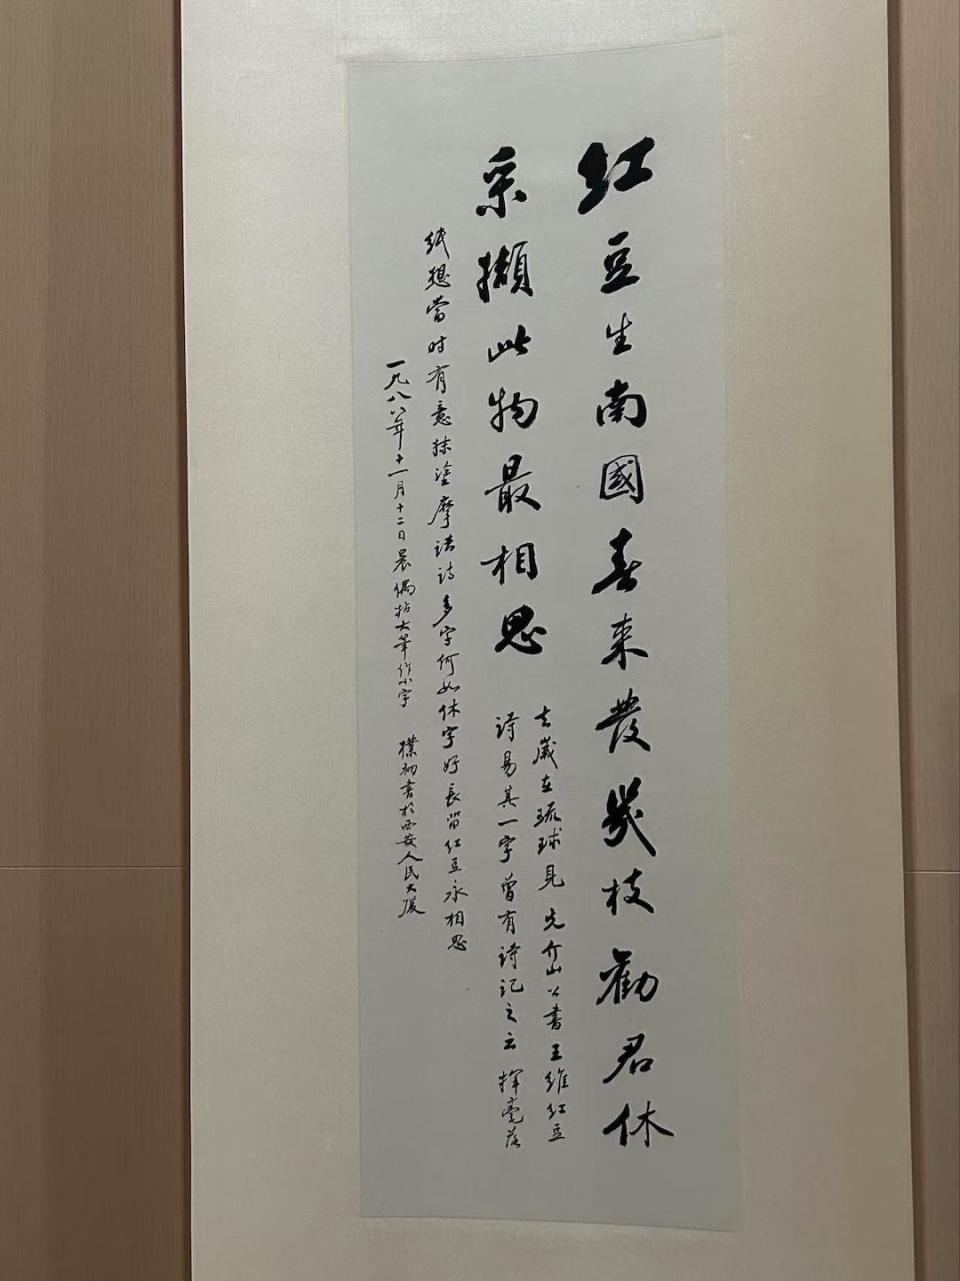 紅豆生南國春来發幾枝勸君休
采擷此物最相思
去歲在琉球見先介山公書王維红豆
诗易其一字曾有诗记之云挥毫落
纸想當时有意抹塗摩诘诗多字何如休字好長留红豆永相思
一九八八年十一月十二日晨偶拈大筆作小字
樸初書於西安人民大厦